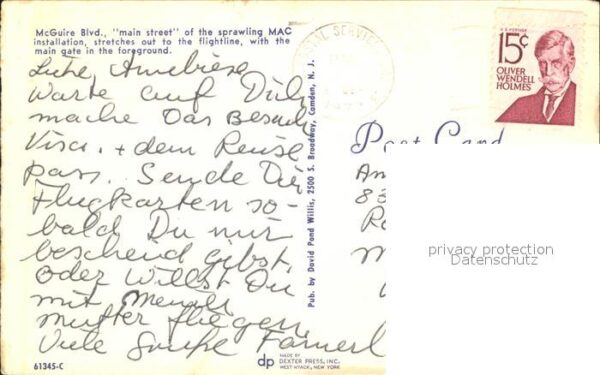 McGuire Blvd., "main street" of the sprawling MAC
installation, stretches out to the flightline, with the
main gate in the foreground.
warte auf Dich
mache Das Besuch
Visa. + dem Reise
pass. Sende Dir
Flugkarten so-
bald Du mir
bescheid gibst,
oder Willst Du
mit
mutter fliegen.
Viele
61345-C
Pub. by David Pond Willis, 2500 S. Broadway, Camden, N. J.
dp
MADE BY
DEXTER PRESS, INC.
WEST NYACK, NEW YORK
U.S. POSTAGE
15¢
OLIVER
WENDELL
HOLMES
Post Card
An
83
privacy protection
Datenschutz